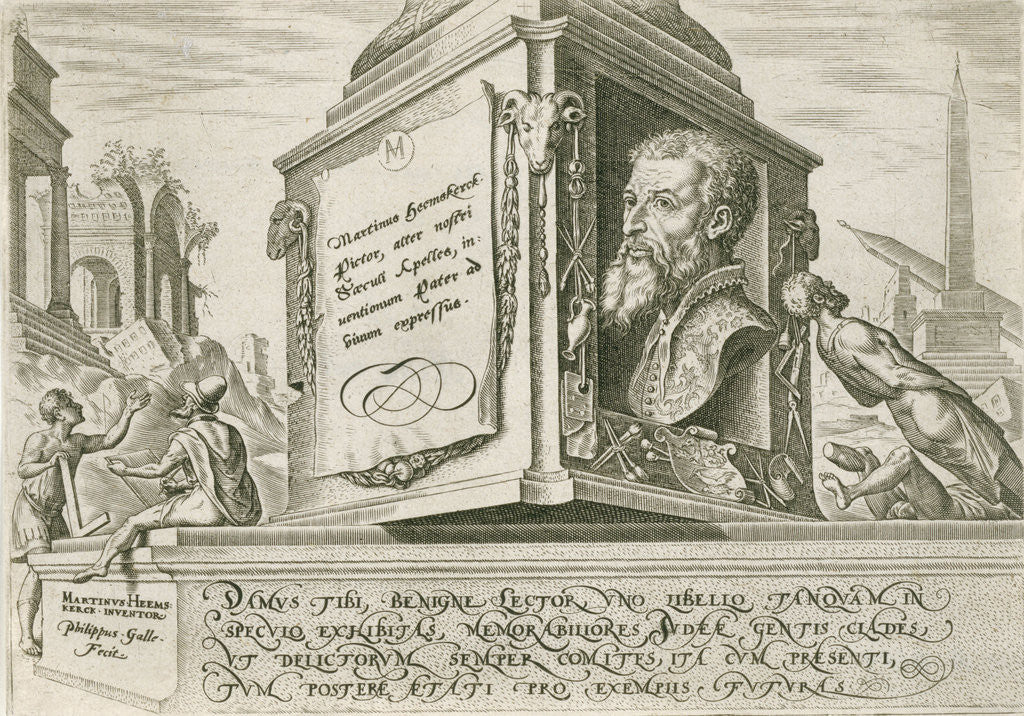 M
Martinus Heemskerck.
Pictor, alter nostri
Sæculi Apelles, in-
uentionum Pater ad
viuum expressus.
MARTINVS·HEEMS-
KERCK·INVENTOR
Philippus·Galle·
Fecit.
DAMVS TIBI, BENIGNE LECTOR, VNO LIBELLO TANQVAM IN
SPECVLO EXHIBITAS, MEMORABILIORES JVDEÆ GENTIS CLADES,
VT DELICTORVM SEMPER COMITES, ITA CVM PRESENTI,
TVM POSTERÆ ÆTATI PRO EXEMPLIS FVTVRAS.